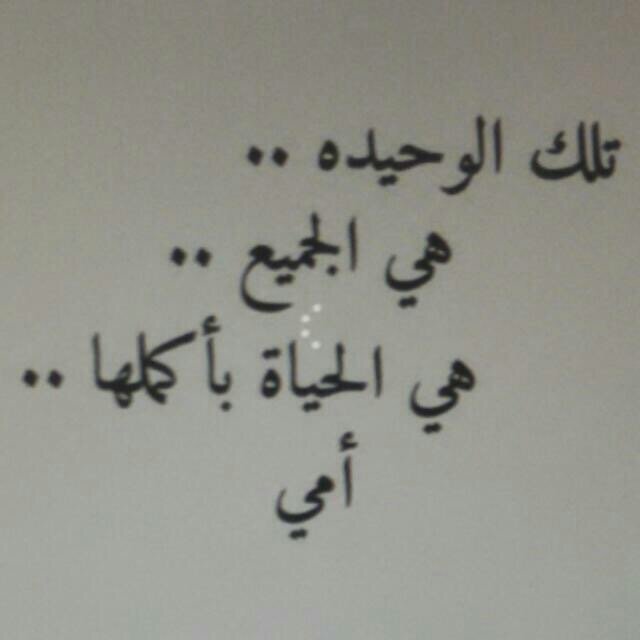 تلك الوحيده ..
هي الجميع ..
هي الحياة بأكملها ..
أمي